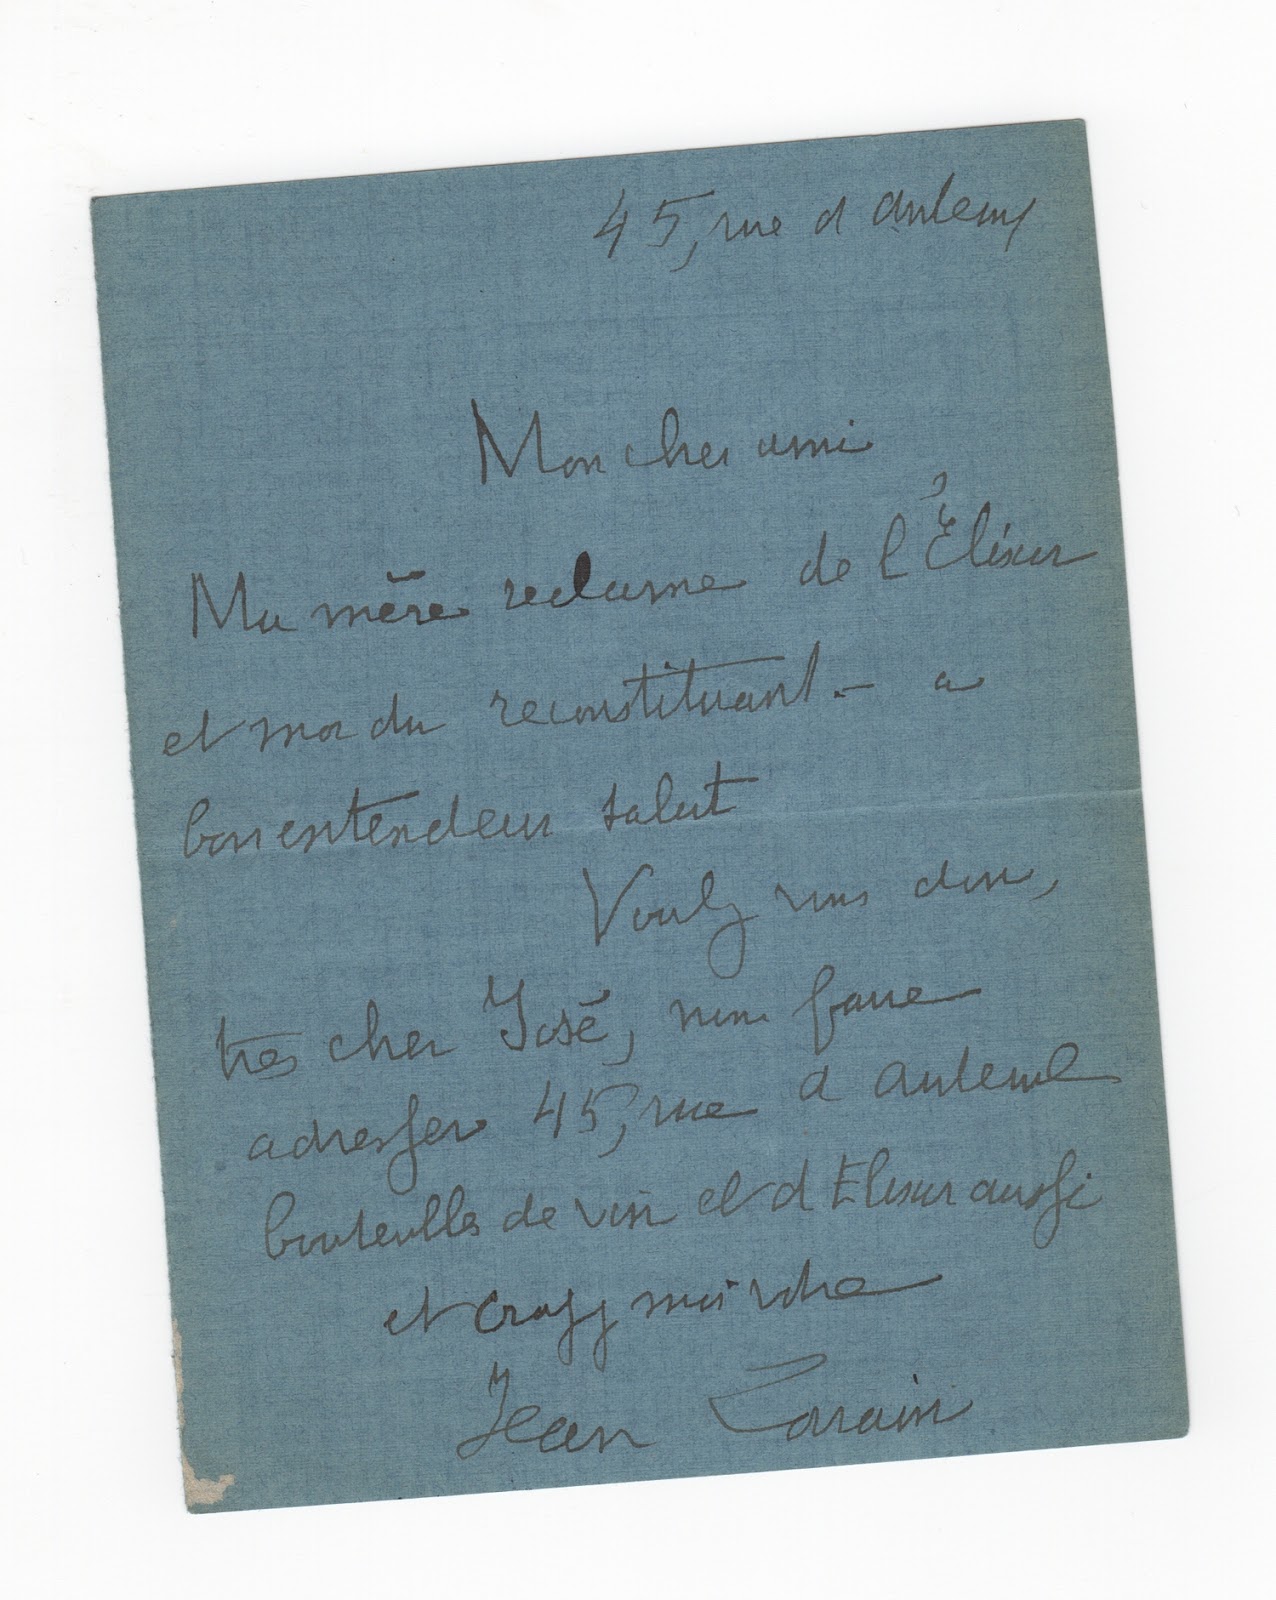 45, rue d Auteuil
Mon cher ami
Ma mère reclame de l'Élixir
et moi du reconstituant. - a
bon entendeur salut
Voulez vous donc,
tres cher José, nous faire
adresser 45, rue d Auteuil
bouteilles de vin et d Elixir aussi
et croyez moi votre
Jean Lorrain